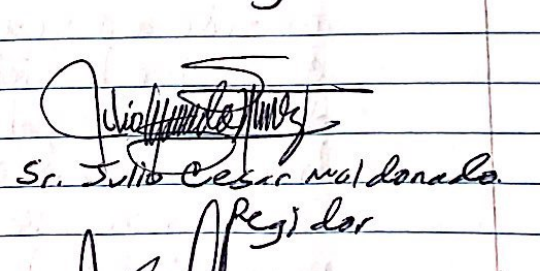 Julio
Sr. Julio Cesar Maldonado.
Regidor